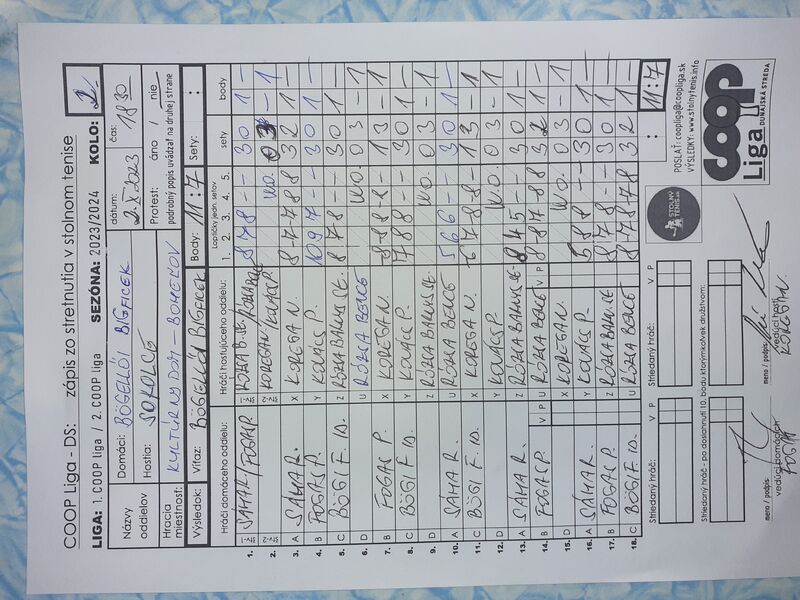 COOP Liga - DS: zápis zo stretnutia v stolnom tenise
LIGA: 1.COOP liga / 2.COOP liga SEZÓNA: 2023/2024 KOLO: 2.
Názvy oddielov
Domáci: BÖGELLÖI BÍGFICEK
Hostia: SOKOLCE
dátum: 2.X.2023
čas: 18 30
Hracia miestnosť: KULTÚRNY DOM - BOHEĽOV
Protest: áno / nie
podrobný popis uvádzať na druhej strane
Výsledok: Víťaz: BÖGELLÖI BÍGFICEK Body: 11:7 Sety: :
Hráči domáceho oddielu: Hráči hosťujúceho oddielu: Loptičky jedn. setov sety body
1. 2. 3. 4. 5.
1. SÁHA R. / FOGAS P. RÓZSA B. SE. 8 7 8 - - 3 0 1 -
2. KOREGAN / KOVÁCS P. W.O. 0 3 - 1
3. A SÁHA R. X KOREGA N. 3 2 1 -
4. B FOGAS P. Y KOVÁCS P. 10 9 7 - - 3 0 1 -
5. C BÖGI F. ID. Z RÓZSA BARNUS SE. 8 7 8 - - 3 0 1 -
6. D U RÓZSA BENCE W.O. 0 3 - 1
7. B FOGAS P. X KOREGA N. 1 3 - 1
8. C BÖGI F. ID. Y KOVÁCS P. 7 8 8 - - 3 0 1 -
9. D Z RÓZSA BARNUS SE. W.O. 0 3 - 1
10. A SÁHA R. U RÓZSA BENCE 5 6 6 - - 3 0 1 -
11. C BÖGI F. ID. X KOREGA N. 1 3 - 1
12. D Y KOVÁCS P. W.O. 0 3 - 1
13. A SÁHA R. Z RÓZSA BARNUS SE. 8 4 5 - - 3 0 1 -
14. B FOGAS P. V P U RÓZSA BENCE V P 3 2 1 -
15. D X KOREGA N. W.O. 0 3 - 1
16. A SÁHA R. Y KOVÁCS P. 5 8 8 - - 3 0 1 -
17. B FOGAS P. Z RÓZSA BARNUS SE. 8 7 8 - - 3 0 1 -
18. C BÖGI F. ID. U RÓZSA BENCE 3 2 1 -
: 11:7
Striedaný hráč: V P
Striedaný hráč: V P
Striedaný hráč - po dosiahnutí 10. bodu ktorýmkoľvek družstvom:
V P
STOLNÝ TENIS.sk
POSLAŤ: coopliga@coopliga.sk
VÝSLEDKY: www.stolnytenis.info
coop
Liga DUNAJSKÁ STREDA
meno / podpis:
vedúci domácich
FOGAS P.
meno / podpis:
vedúci hostí
KOREGA N.